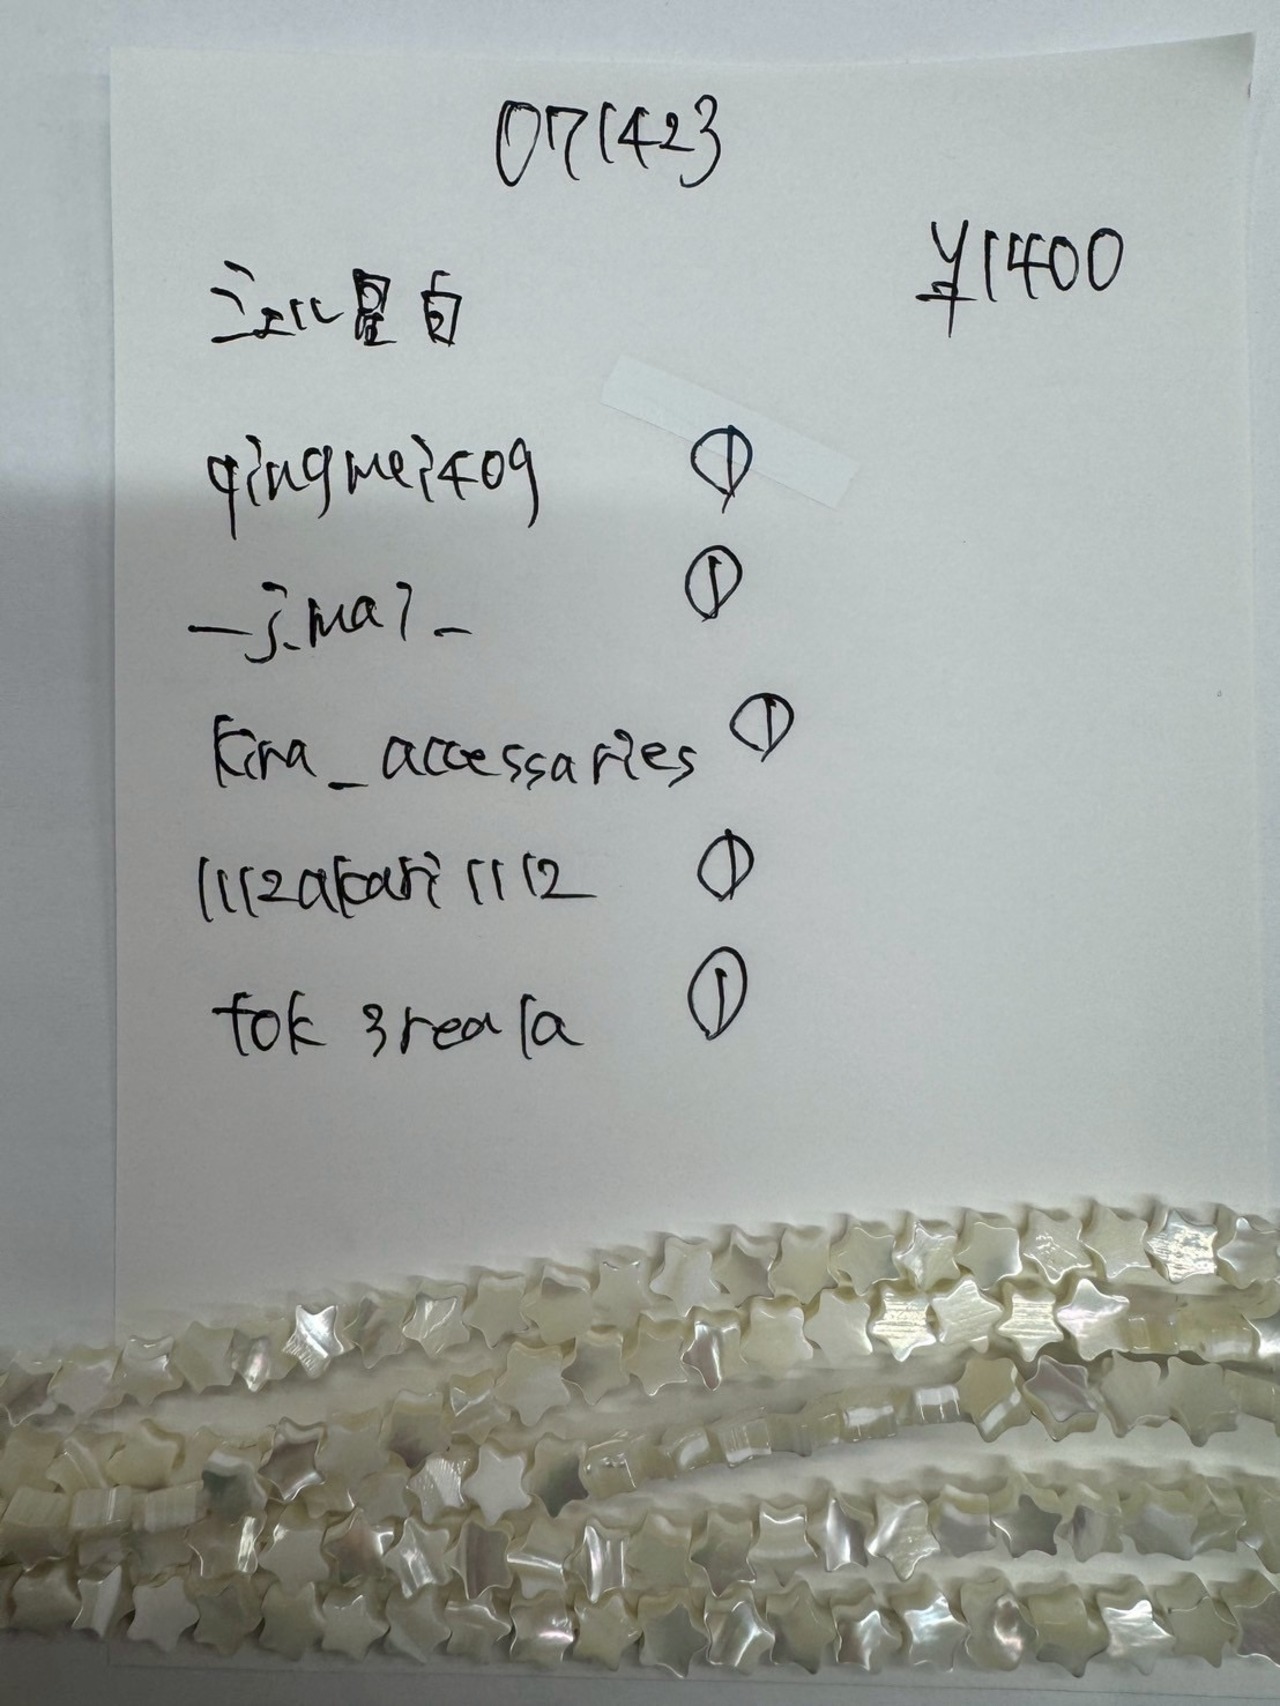 071423
¥1400
シェル星白
qingmei409 ①
_j.mai_ ①
kira_accessaries ①
1112akari1112 ①
tok3reala ①